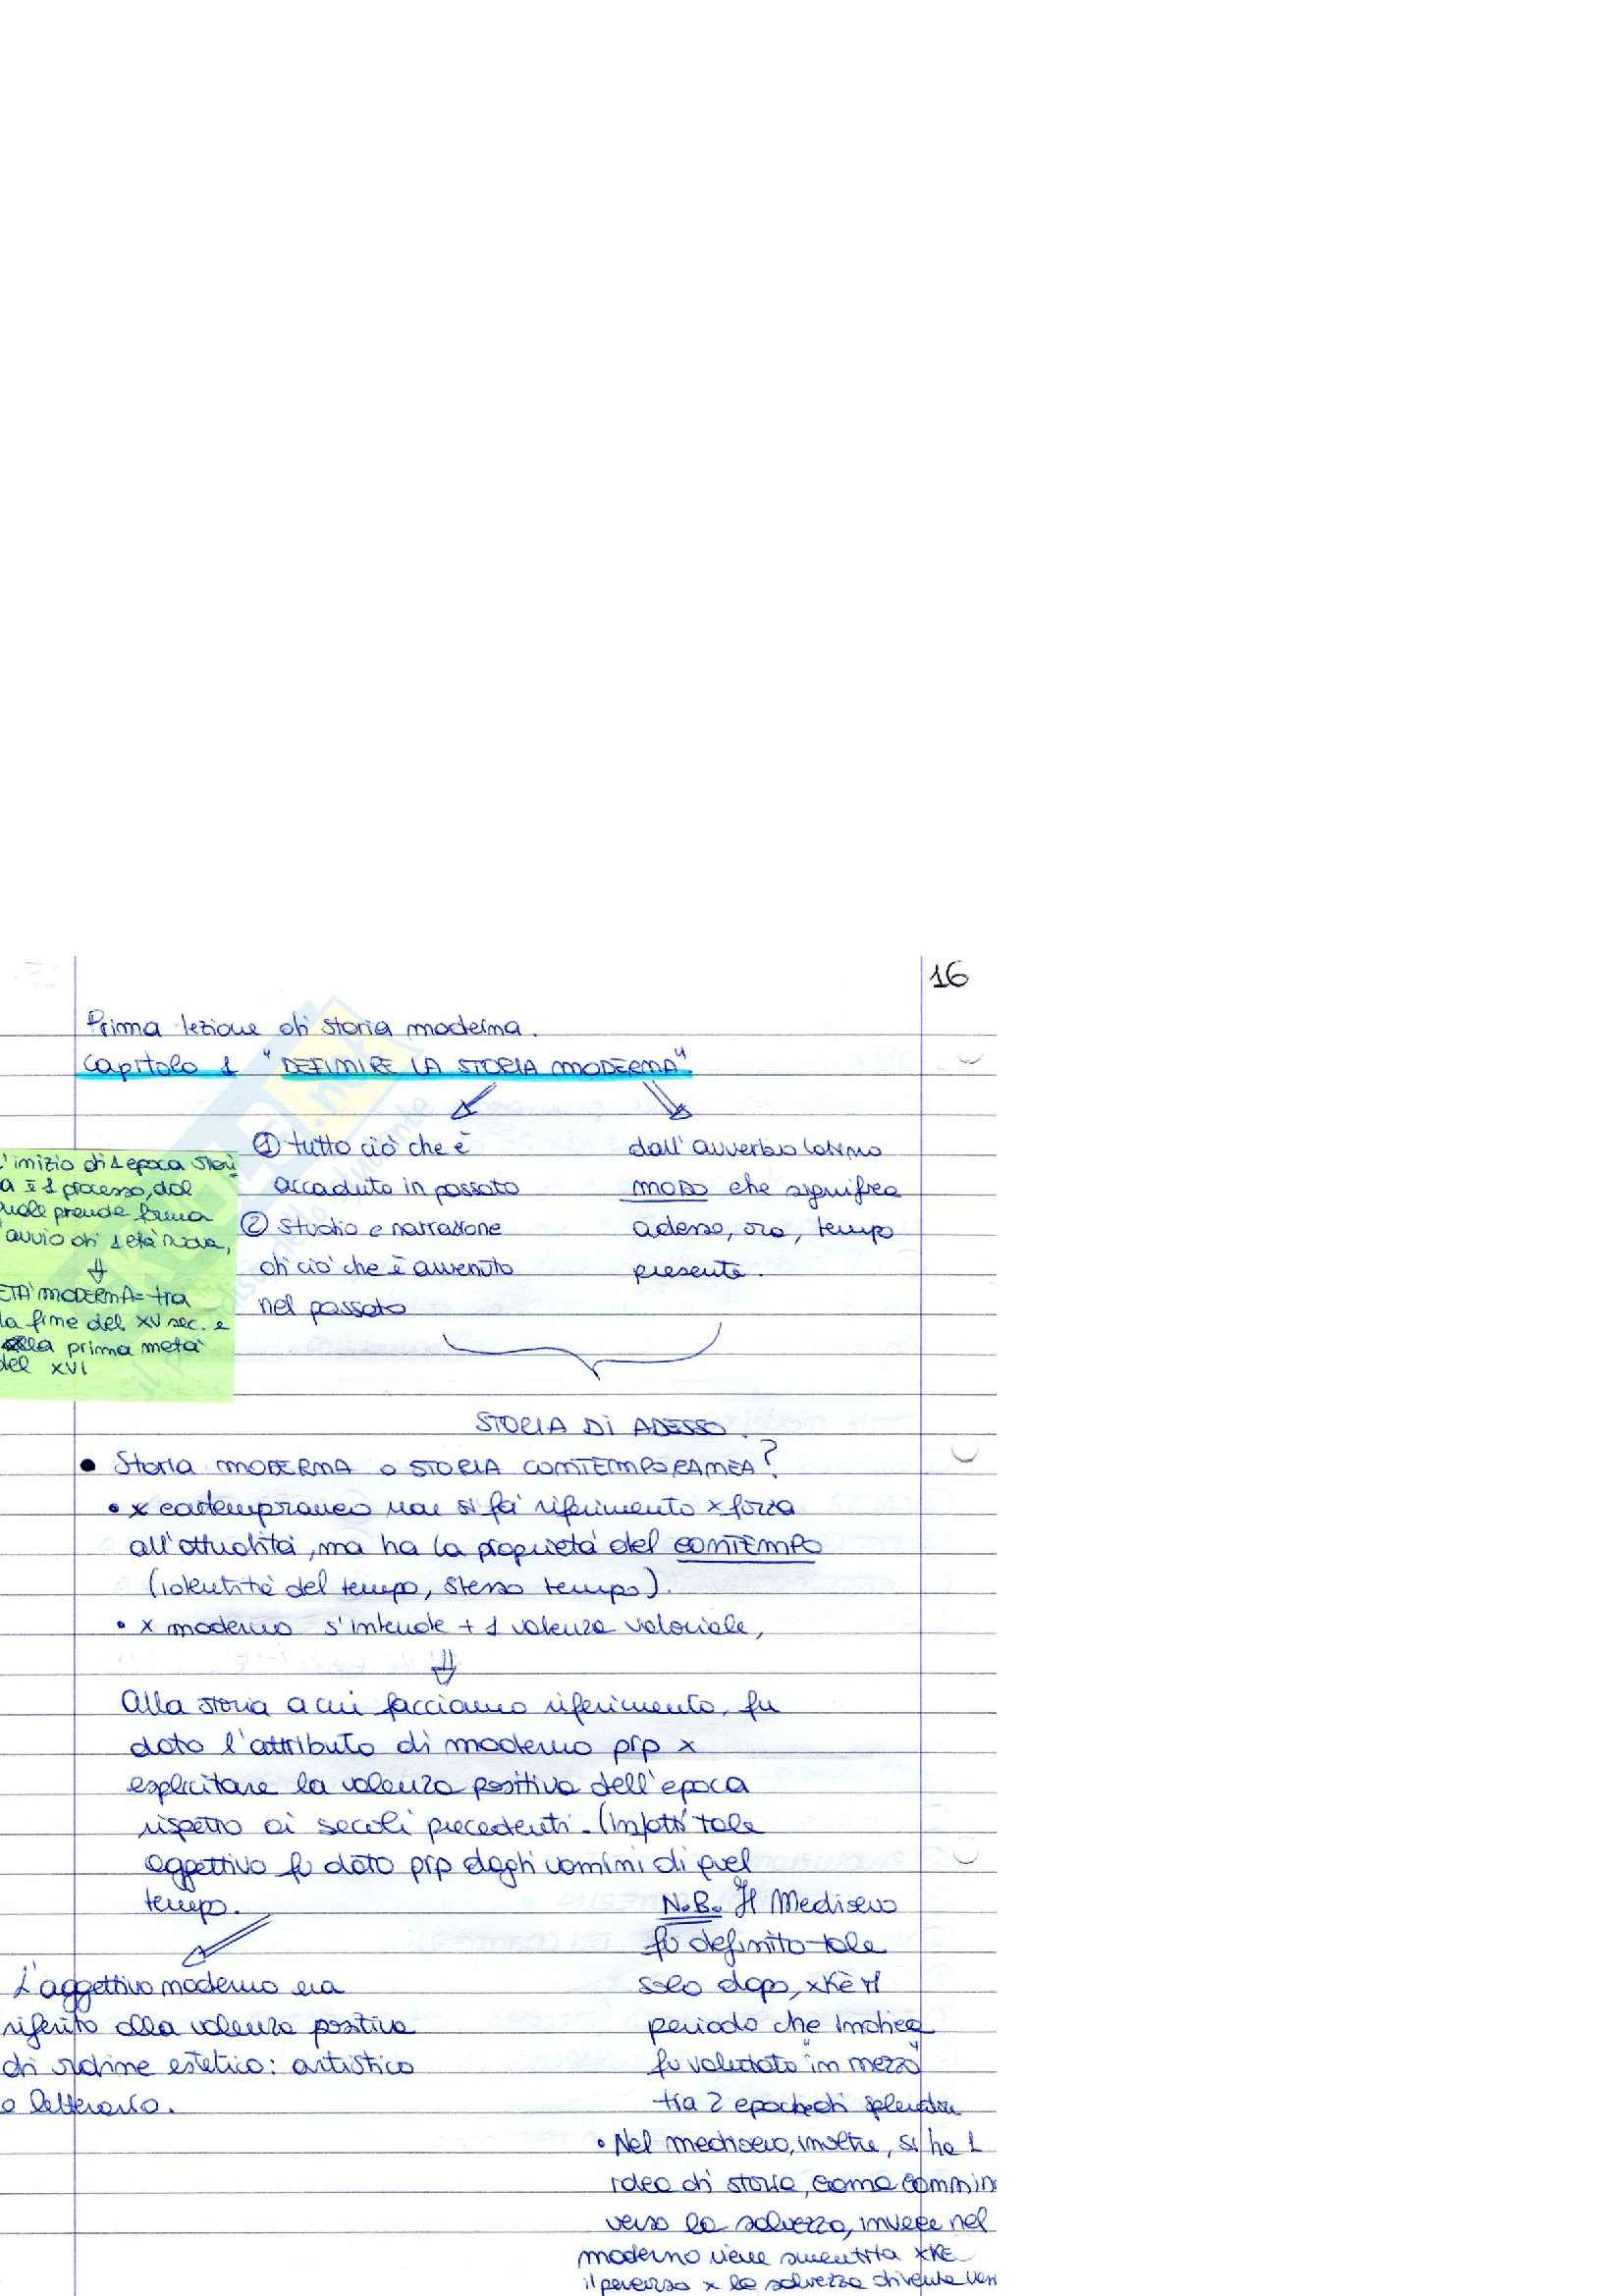 16
Prima lezione di storia moderna.
Capitolo 1 "DEFINIRE LA STORIA MODERNA".
① tutto ciò che è
accaduto in passato
② studio e narrazione
di ciò che è avvenuto
nel passato
dall'avverbio latino
MODO che significa
adesso, ora, tempo
presente.
l'inizio di 1 epoca stori
a è 1 processo, dal
quale prende forma
l'avvio di 1 età nuova,
ETÀ MODERNA= tra
la fine del XV sec. e
della prima metà
del XVI
STORIA DI ADESSO.
• Storia MODERNA o STORIA CONTEMPORANEA?
• x contemporaneo non si fa riferimento x forza
all'attualità, ma ha la proprietà del CONTEMPO
(identità del tempo, stesso tempo).
• x moderno s'intende + 1 valenza valoriale,
Alla storia a cui facciamo riferimento, fu
dato l'attributo di moderno prp x
esplicitare la valenza positiva dell'epoca
rispetto ai secoli precedenti. (Infatti tale
aggettivo fu dato prp dagli uomini di quel
tempo.
L'aggettivo moderno era
riferito alla valenza positiva
di ordine estetico: artistico
o letterario.
N.B. Il Medioevo
fu definito tale
solo dopo, xkè il
periodo che indica
fu valutato "in mezzo"
tra 2 epoche di splendore
• Nel medioevo, inoltre, si ha 1
idea di storia, come cammin
verso la salvezza, invece nel
moderno viene smentita xKE
il percorso x la salvezza diventa